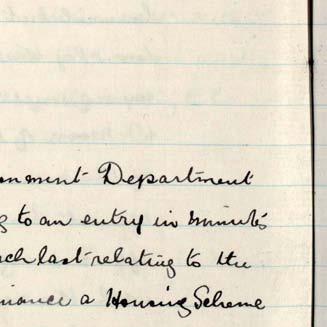 onment Department
g to an entry in minutes
rch last relating to the
inance a Housing Scheme